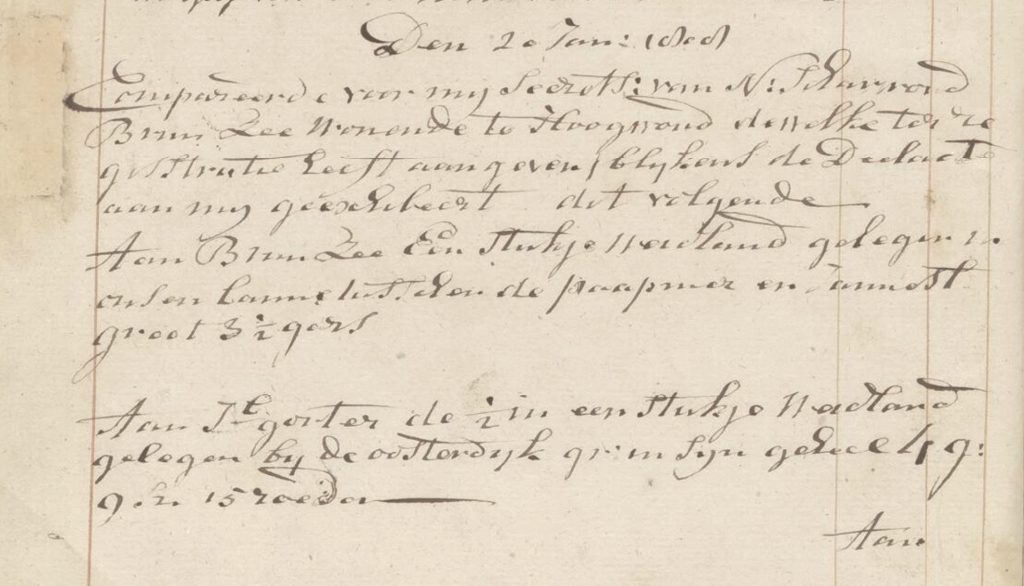 Den 20 Jan: 1808
Compareerde voor my Secrets: van N: Scharwoud
Brun Zee Wonende te Hoogwoud dewelke ter re
gistratie heeft aangeven, blykens de Declaratie
aan my geexhibeert dit volgende
Aan Brun Zee Een stukje Weidland gelegen in
onsen banne tusschen de paapmeer en
groot 3 1/2 gers
Aan Jt gorter de 1/2 in een stukje Weidland
gelegen by de oosterdyk gr: in syn geheel 4 g:
15 roeden
Aan